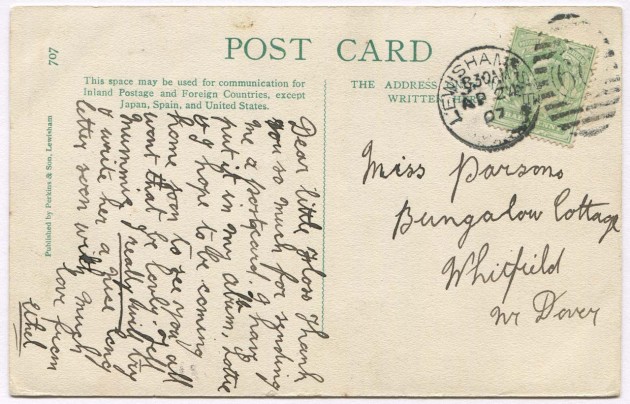 707
POST CARD
This space may be used for communication for
Inland Postage and Foreign Countries, except
Japan, Spain, and United States.
THE ADDRESS
WRITTEN
Published by Perkins & Son, Lewisham
LEWISHAM
07
Dear little Flow Thank
you so much for sending
me a postcard I have
put it in my album, Lottie
& I hope to be coming
home soon to see you all
wont that be lovly tell
mummie I really will try
& write her a nice long
letter soon with much
love from
Ethel
Miss Parsons
Bungalow Cottage
Whitfield
nr Dover